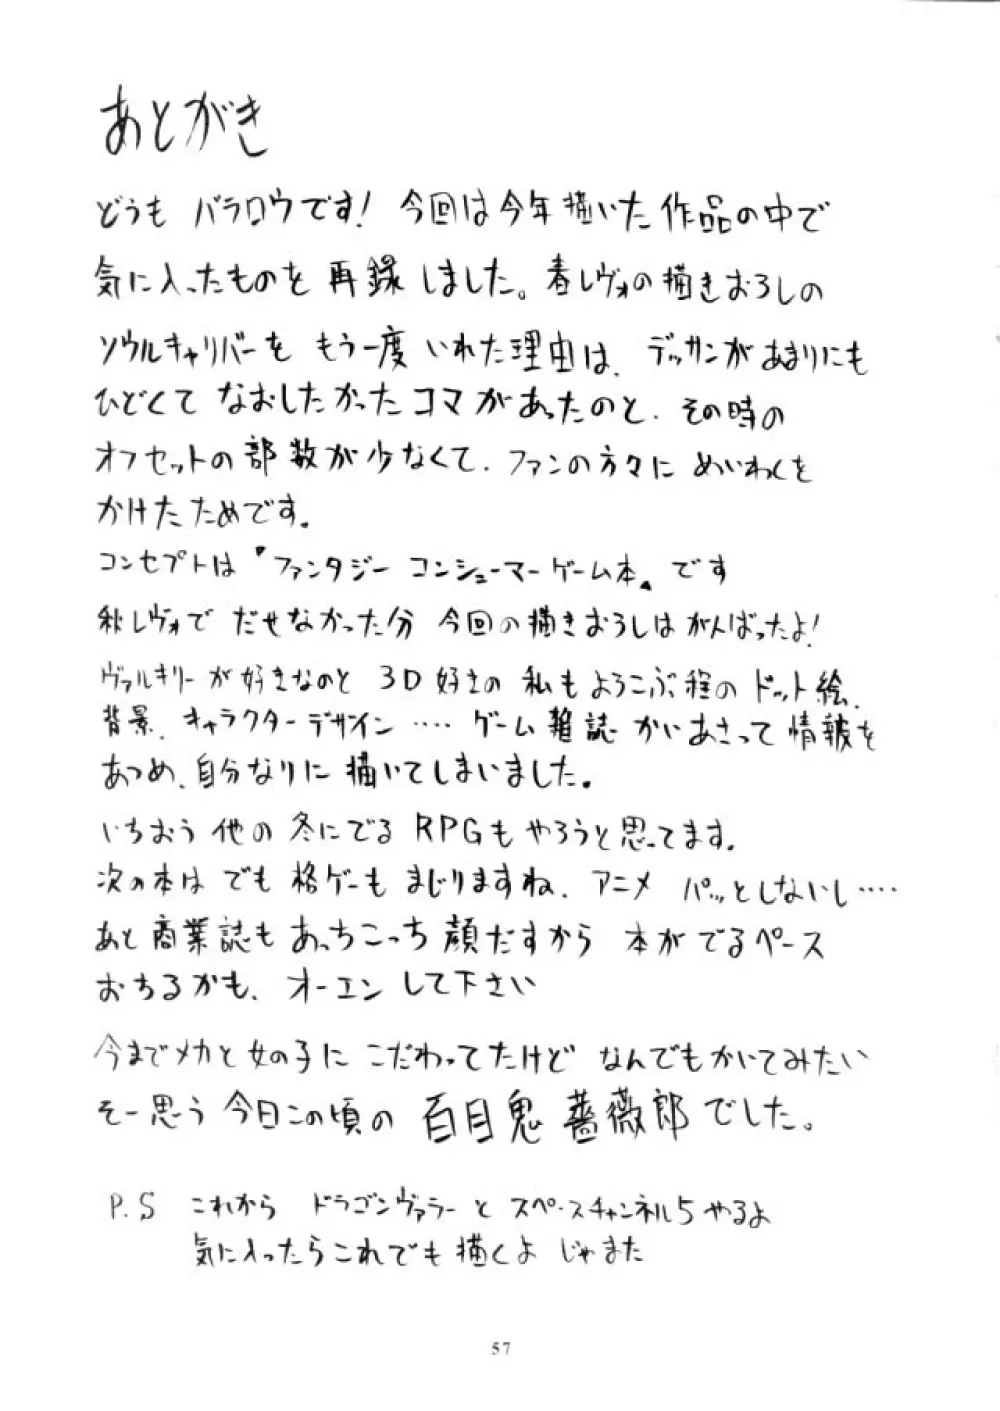 あとがき
どうも バラロウです! 今回は今年描いた作品の中で
気に入ったものを 再録 しました。春レヴォの描きおろしの
ソウルキャリバーを もう一度 いれた理由は、デッサンがあまりにも
ひどくて なおしたかったコマがあったのと、その時の
オフセットの部数が少なくて、ファンの方々に めいわくを
かけたためです。
コンセプトは『ファンタジー コンシューマーゲーム本』です
秋レヴォで だせなかった分 今回の描きおろしはがんばったよ!
ヴァルキリーが好きなのと 3D好きの 私もよろこぶ程の ドット絵、
背景、キャラクターデザイン…… ゲーム雑誌 かいあさって情報を
あつめ、自分なりに 描いてしまいました。
いちおう 他の 冬にでる RPGも やろうと思ってます。
次の本は でも 格ゲーも まじりますね、アニメ パッとしないし……
あと 商業誌も あっちこっち 顔だすから 本がでるペース
おちるかも、オーエン して下さい
今までメカと女の子に こだわってたけど なんでもかいてみたい
そー思う 今日この頃の 百目鬼 薔薇郎でした。
P.S これから ドラゴンヴァラーと スペースチャンネル5やるよ
気に入ったらこれでも描くよ じゃまた
57